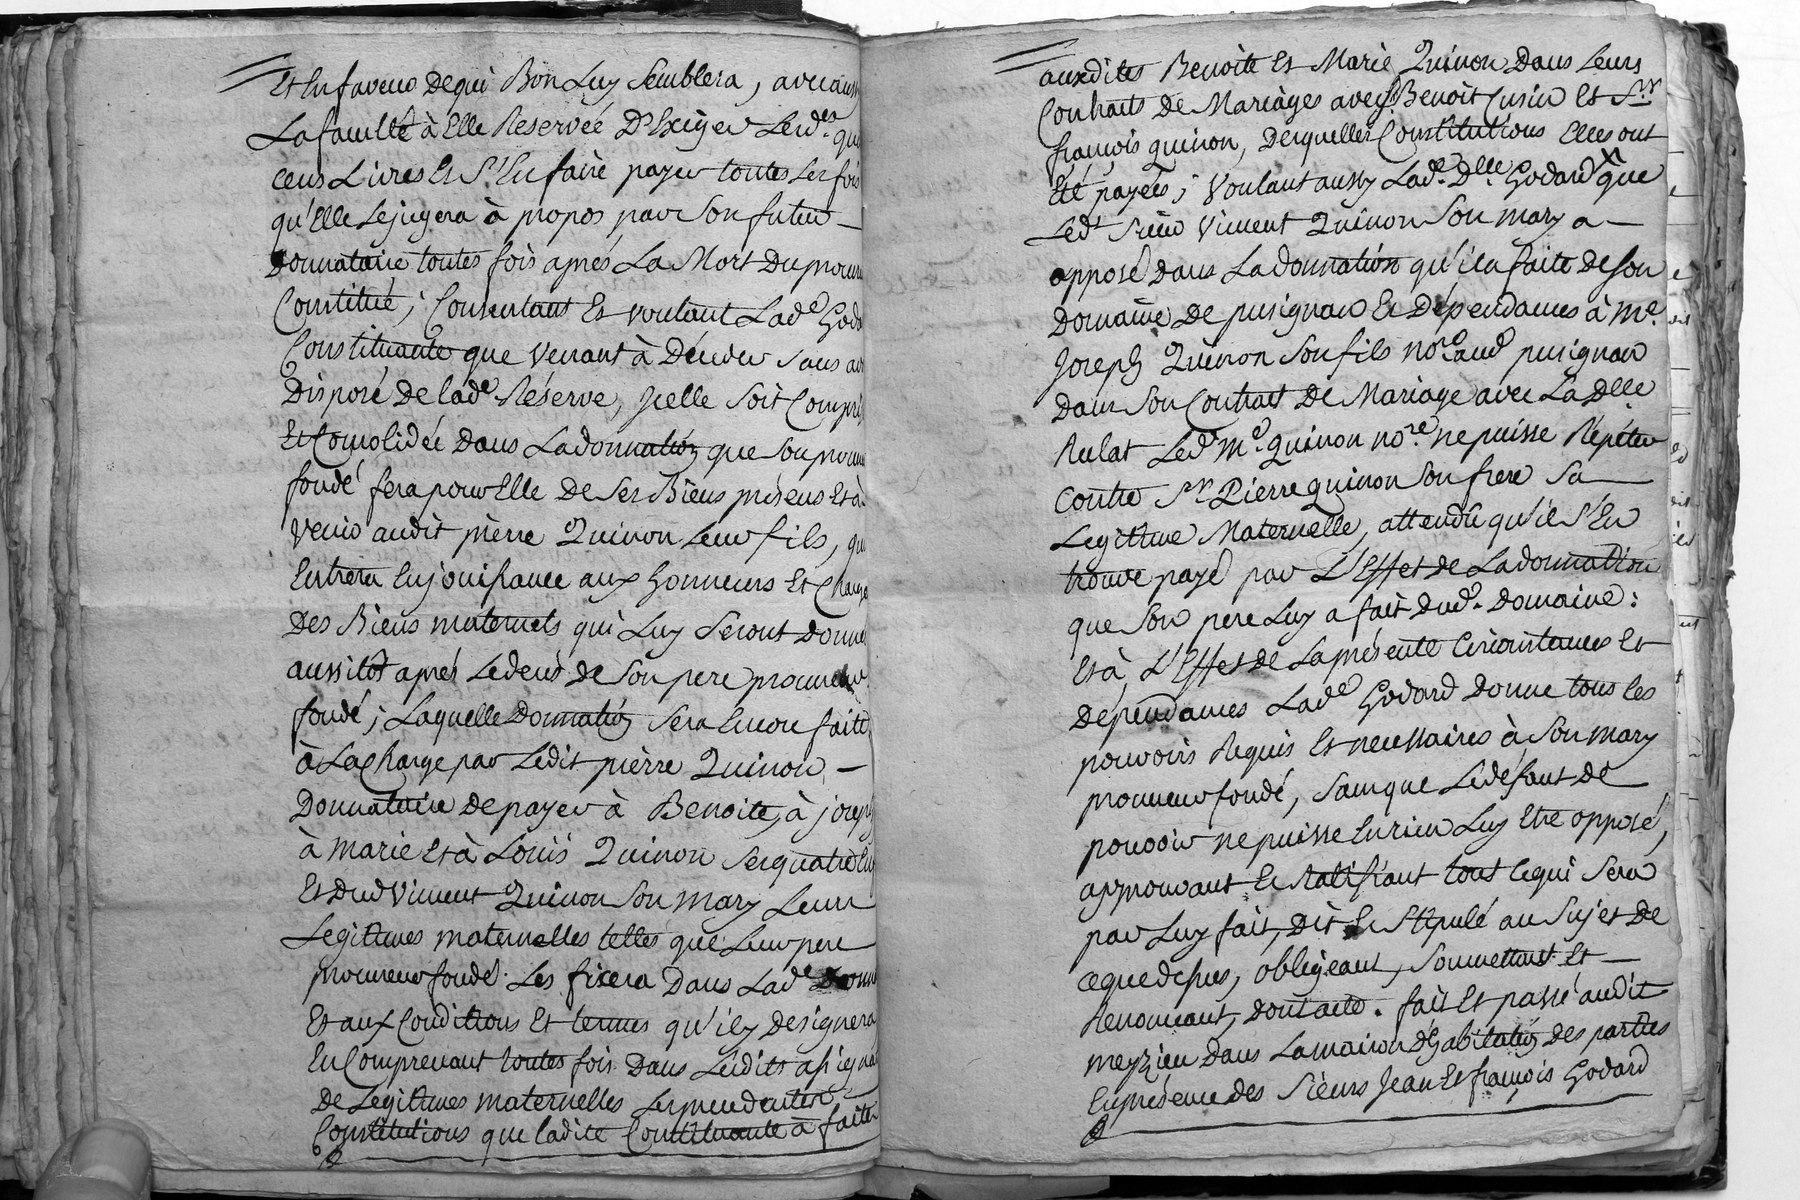 Et En faveur De qui Bon Luy Semblera, avec aussy
La faculté à Elle Reservée D'Exiger Lesd.es
cens Livres Et S'En faire payer toutes Les fois
qu'Elle Le jugera à propos par Son futur
Donnataire toutes fois aprés La Mort Du procur
Constitué; Consentant Et voulant Lad.e Goda
Constituante que Venant à Décéder sans avo
Disposé De lad.e Réserve, Jcelle Soit Compri
Et Consolidée Dans La donnation que Son procur
fondé fera pour Elle De Ses Biens présens Et à
Venir audit pierre Quinon Leur fils, qui
Entrera En jouissance aux honneurs Et Charge
Des Biens maternels qui Luy Seront Donné
aussitot aprés Le decés de Son pere procureur
fondé; Laquelle Donnation Sera Encore faitte
à La Charge par Ledit pierre Quinon
Donnataire De payer à Benoite, à joseph
à Marie Et à Louis Quinon Ses quatre En
Et Dud Vincent Quinon Son Mary Leurs
Legitimes maternelles telles que Leur pere
procureur fondé Les fixera Dans Lad.e Donn
Et aux Conditions Et termes qu'il y Designera
En Comprenant toutes fois Dans Lesdits
De Legitimes maternelles Les precedentes
Constitutions que ladite Constituante a faitte
auxdites Benoite Et Marie Quinon Dans Leurs
Contrats De Mariages avec Benoit Cusin Et S.r
françois quinon, Desquelles Constitutions Elles ont
Eté payées; Voulant aussy Lad.e D.lle Godard que
Led.t Sieur Vincent Quinon Son mary a
apposé Dans La donnation qu'il a faite De Son
Domaine De pusignan Et Dépendances à M.e
Joseph Quinon Son fils no.re aud pusignan
Dans Son Contract De Mariage avec La D.lle
Rulat Led. M.e quinon no.re ne puisse Répéter
Contre S.r Pierre quinon Son frere Sa
Legitime Maternelle, attendu qu'il S'En
trouve payé par L'Effet de La donnation
que Son pere Luy a fait Dud. Domaine:
Et à L'Effet de La présente Circonstances Et
dépendances Lad.e Godard Donne tous les
pouvoirs Requis Et necessaires à Son mary
procureur fondé, Sans que Le défaut De
pouvoir ne puisse En rien Luy Etre opposé,
approuvant Et Ratifiant tout ce qui Sera
par Luy fait, Dit Et Stipulé au Sujet De
ce que dessus, obligeant, Soumettant Et
Renonceant, dont acte. fait Et passé audit
meyzieu Dans La maison D'habitation des parties
En présence des Sieurs Jean Et françois Godard